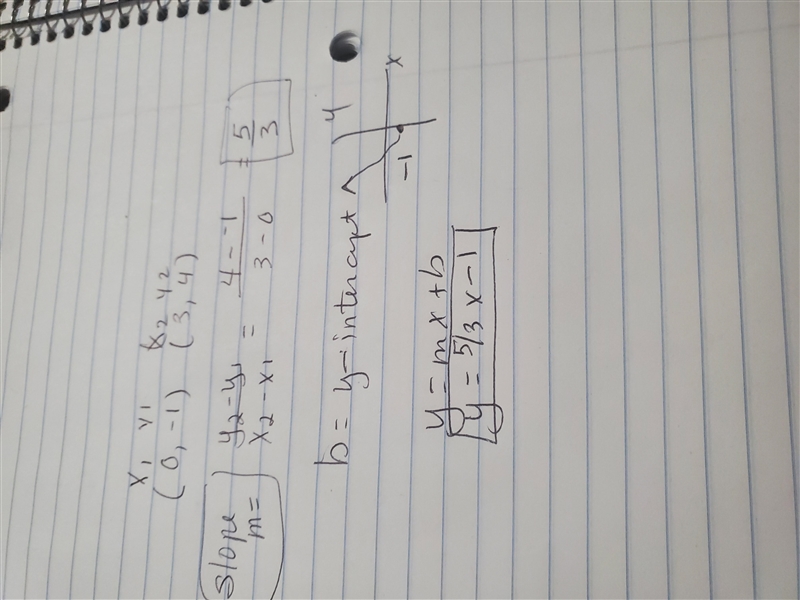 x1 y1 x2 y2
(0, -1) (3, 4)
Slope m= y2-y1 / x2-x1 = 4--1 / 3-0 = 5/3
b = y-intercept
y
x
-1
y = mx + b
y = 5/3 x - 1